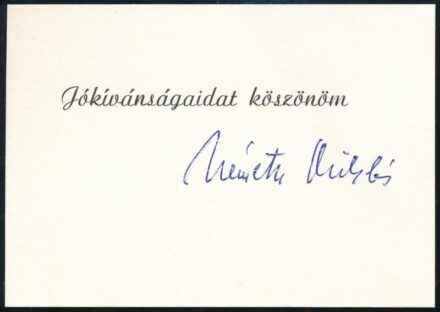 Jókívánságaidat köszönöm
Németh Miklós